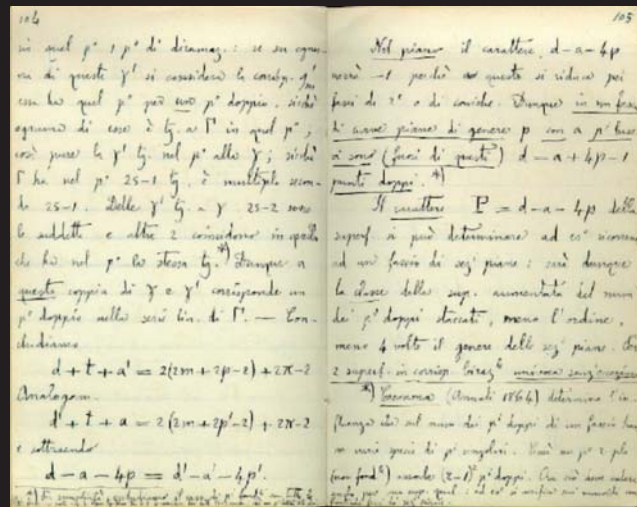 104
in quel pº 1 pº di diramaz.: se su ognu-
na di queste γ' si considera la corrisp.
essa ha quel pº per uno pº doppio, sicchè
ognuna di esse è tg. a Γ in quel pº;
così pure le γ' tg. nel pº alla γ; sicchè
Γ ha nel pº 2s-1 tg. è multiplo secon-
do 2s-1. Delle γ' tg. a γ 2s-2 sono
le suddette e altre 2 coincidono in quella
che ha nel pº la stessa tg.*) Dunque a
questa coppia di γ e γ' corrisponde un
pº doppio nella serie lin. di Γ. — Con-
cludiamo
d + t + a' = 2(2m + 2p - 2) + 2π - 2
Analogam.
d' + t + a = 2(2m + 2p' - 2) + 2π - 2
e sottraendo
d - a - 4p = d' - a' - 4p'.
105
Nel piano il carattere d - a - 4p
verrà -1 perchè questo si riduce pei
fasci di rº o di coniche. Dunque in un fascio
di curve piane di genere p con a pⁱ base
vi sono (fuori di questi) d = a + 4p - 1
punti doppi.*)
Il carattere P = d - a - 4p della
superf. si può determinare ad esº ricorrendo
ad un fascio di sezⁱ piane: sarà dunque
la classe della sup. aumentata del num
dei pⁱ doppi staccati, meno l'ordine,
meno 4 volte il genere delle sezⁱ piane.
2 superf. in corrisp. birazˡᵉ
*) Cremona (Annali 1864) determina l'in-
fluenza che sul num dei pⁱ doppi di un fascio han-
no varie specie di pⁱ singolari. Così un pº r-plo
(non fondˡᵉ) assorbe (r-1)² pⁱ doppi. Ora ciò deve valere